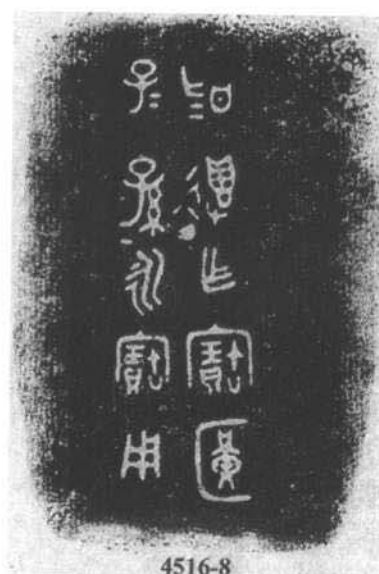 冶遣乍寶匡
子=孫=永寶用
4516-8